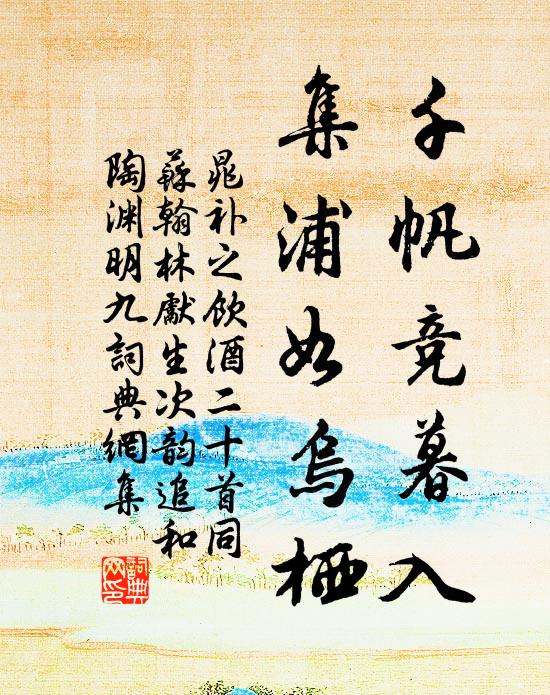 千帆竞暮入
集浦如乌栖
晁补之饮酒二十首同
苏翰林献生次韵追和
陶渊明九词典网集
词典网印